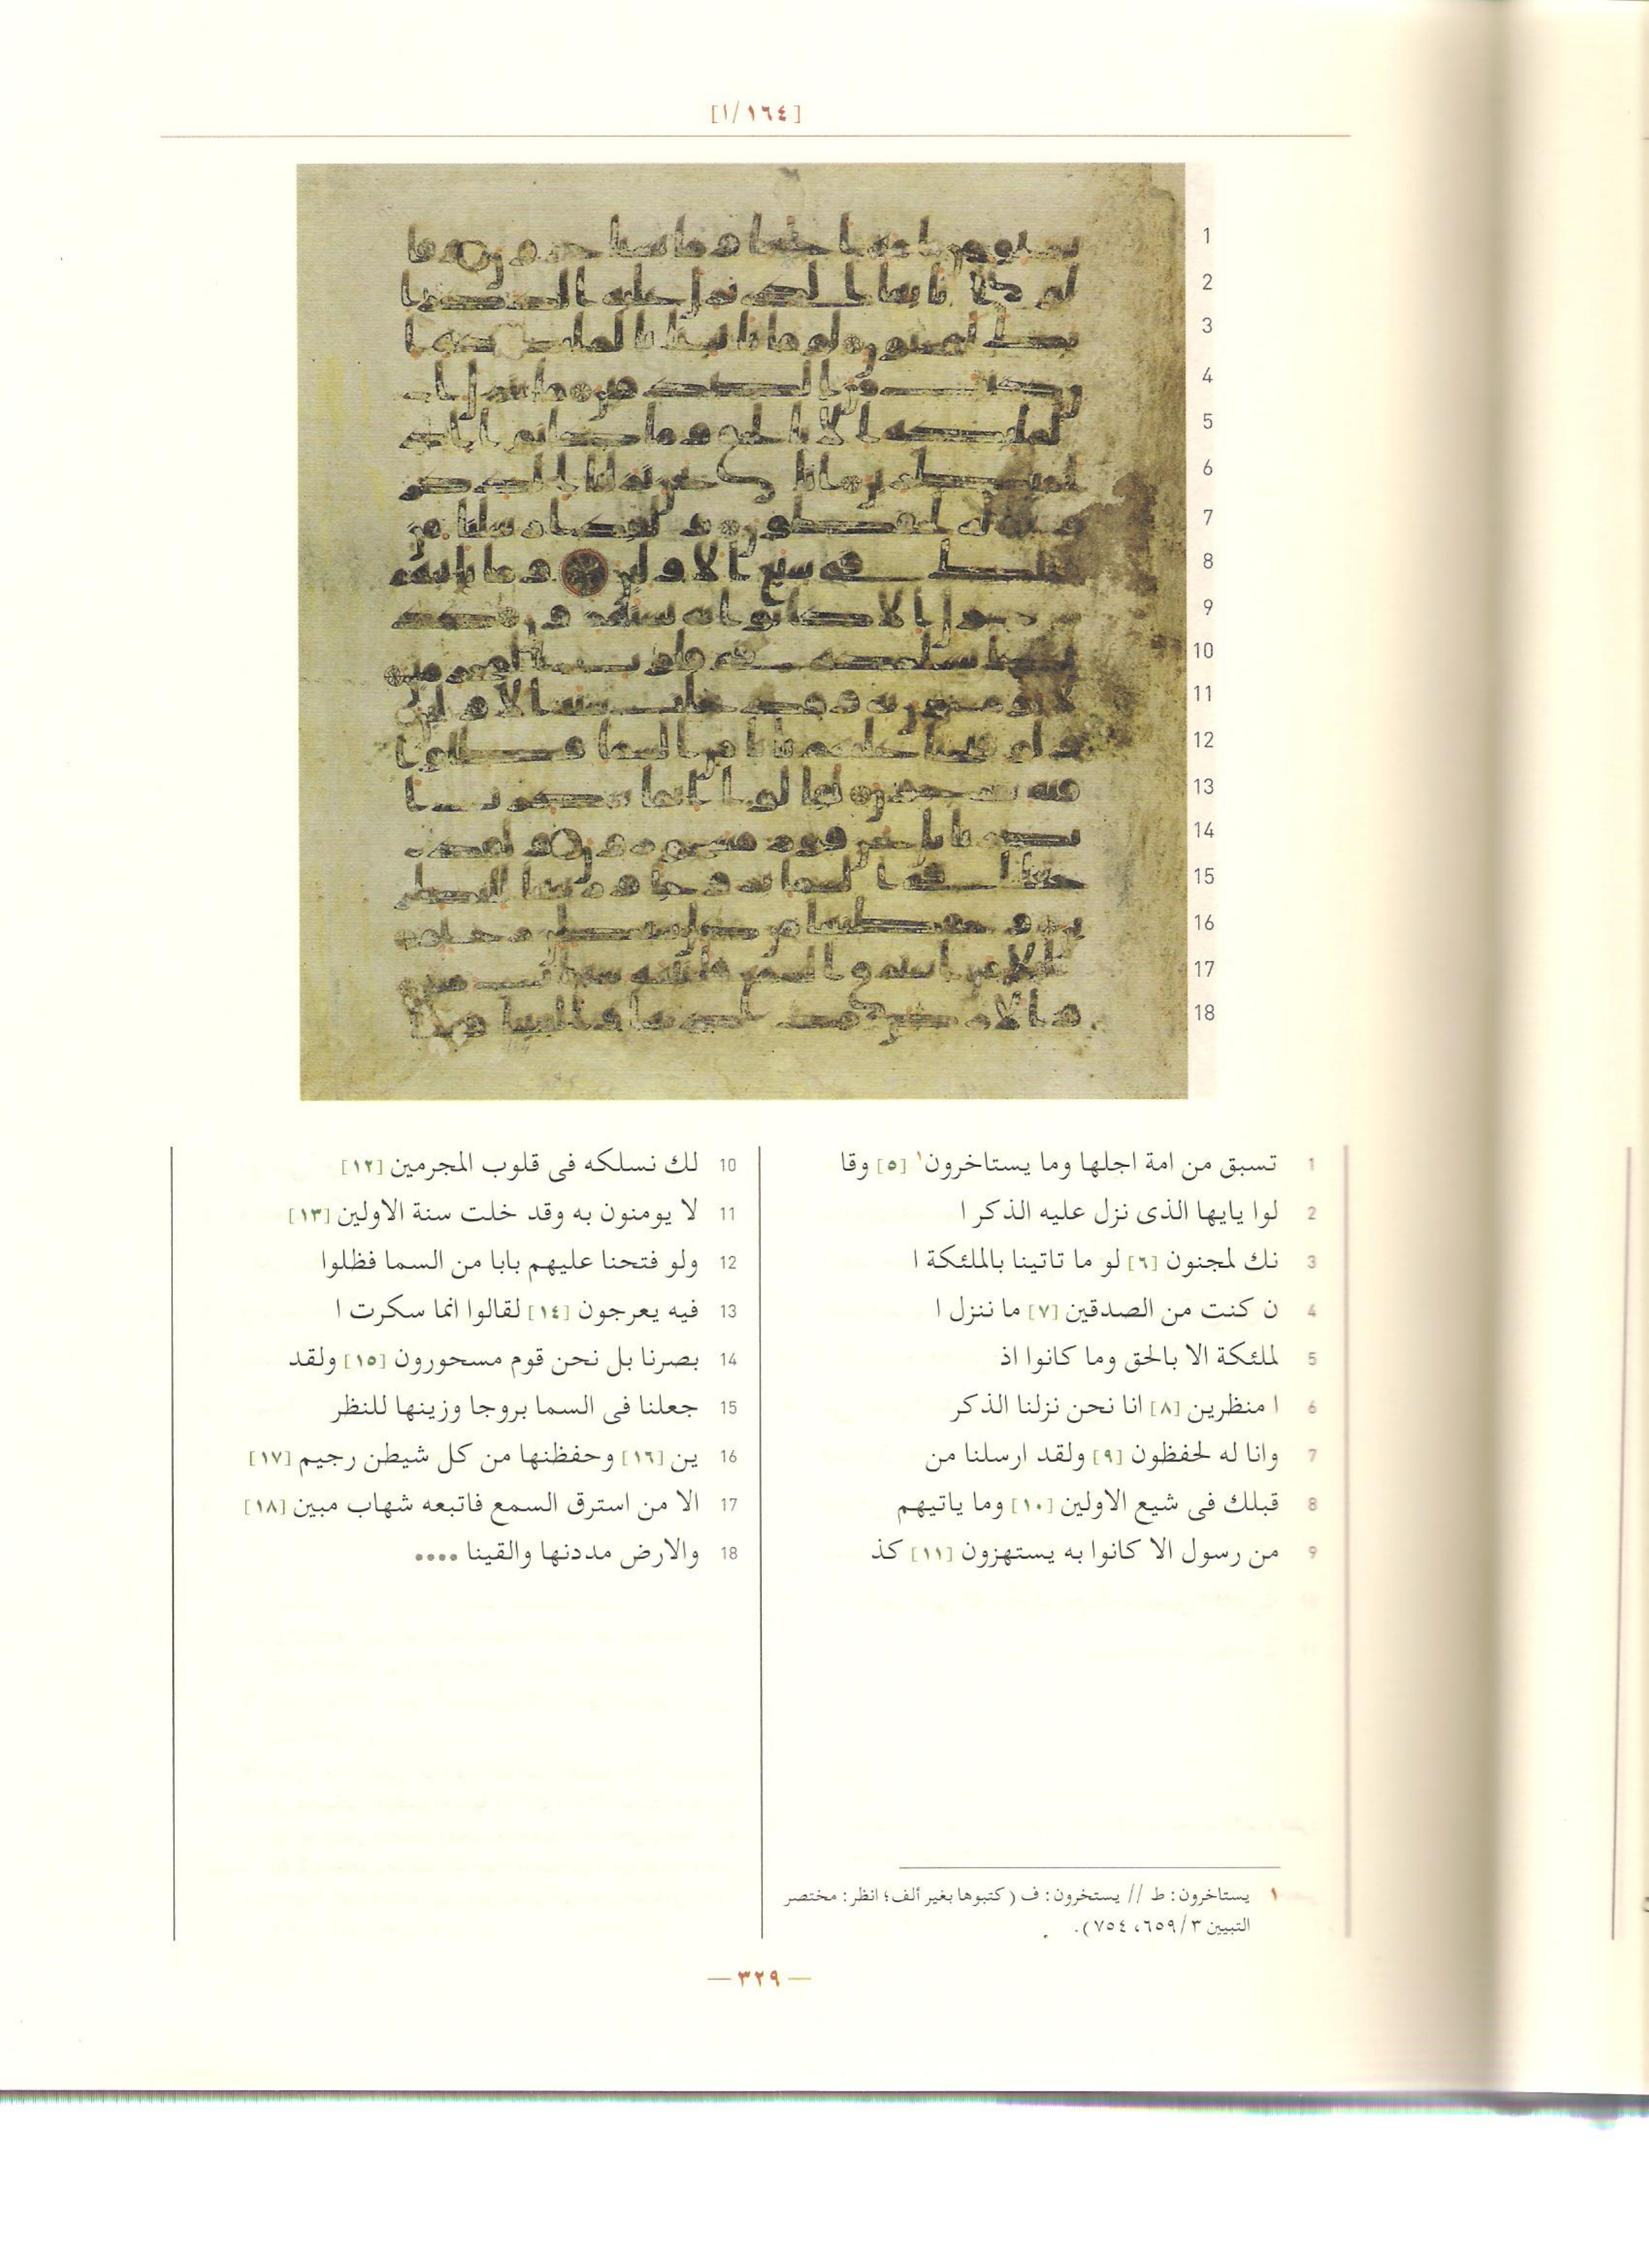 [١/١٦٤]
1
2
3
4
5
6
7
8
9
10
11
12
13
14
15
16
17
18
1 تسبق من امة اجلها وما يستاخرون١ [٥] وقا
2 لوا يايها الذى نزل عليه الذكر ا
3 نك لمجنون [٦] لو ما تاتينا بالملئكة ا
4 ن كنت من الصدقين [٧] ما ننزل ا
5 لملئكة الا بالحق وما كانوا اذ
6 ا منظرين [٨] انا نحن نزلنا الذكر
7 وانا له لحفظون [٩] ولقد ارسلنا من
8 قبلك فى شيع الاولين [١٠] وما ياتيهم
9 من رسول الا كانوا به يستهزون [١١] كذ
10 لك نسلكه فى قلوب المجرمين [١٢]
11 لا يومنون به وقد خلت سنة الاولين [١٣]
12 ولو فتحنا عليهم بابا من السما فظلوا
13 فيه يعرجون [١٤] لقالوا انما سكرت ا
14 بصرنا بل نحن قوم مسحورون [١٥] ولقد
15 جعلنا فى السما بروجا وزينها للنظر
16 ين [١٦] وحفظنها من كل شيطن رجيم [١٧]
17 الا من استرق السمع فاتبعه شهاب مبين [١٨]
18 والارض مددنها والقينا ....
١ يستاخرون: ط // يستخرون: ف (كتبوها بغير ألف؛ انظر: مختصر
التبيين ٣/٦٥٩، ٧٥٤).
— ٣٢٩ —